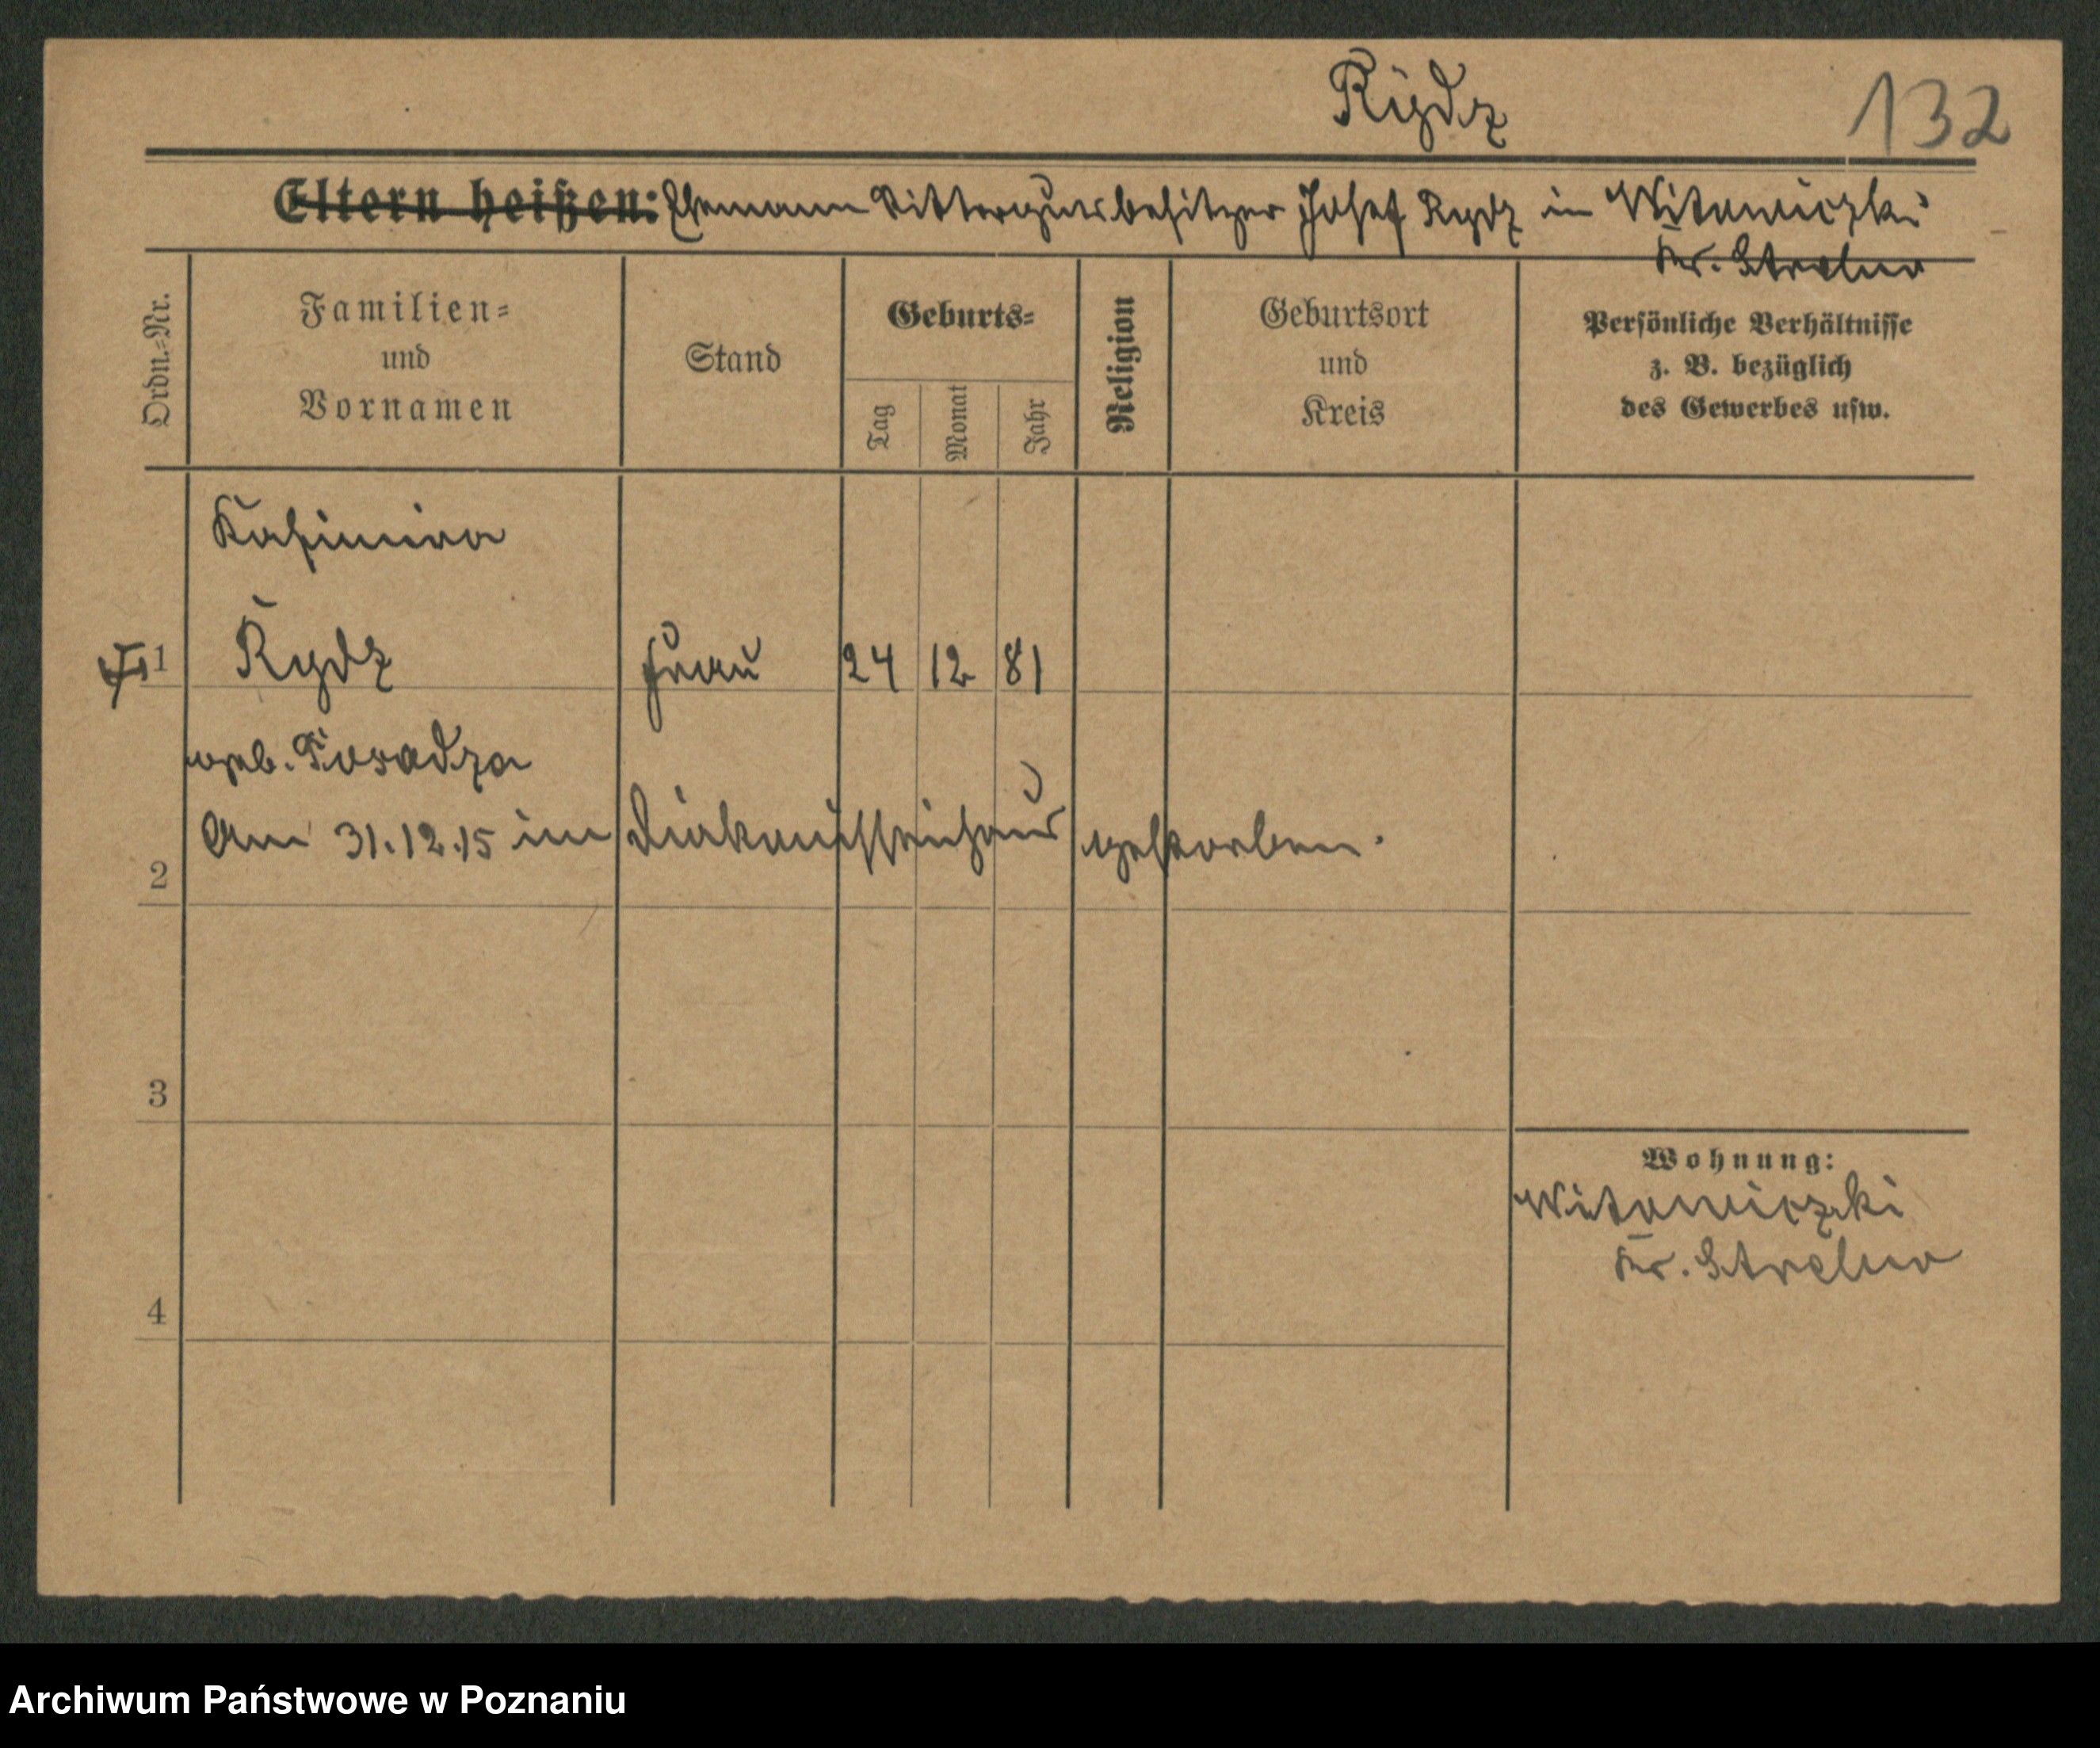 Rÿdz 132
Eltern heißen: Ehemann Rittergutsbesitzer Josef Rydz in Witowiczki
Kr. Strelno
Ordn.=Nr. Familien= und Vornamen Stand Geburts= Tag Monat Jahr Religion Geburtsort und Kreis Persönliche Verhältnisse z. B. bezüglich des Gewerbes usw.
Kasimira
1 Rydz Frau 24 12 81
geb. Posadza
Am 31.12.15 im Diakonissenhaus gestorben.
2
3
Wohnung:
Witowiczki
Kr. Strelno
4
Archiwum Państwowe w Poznaniu